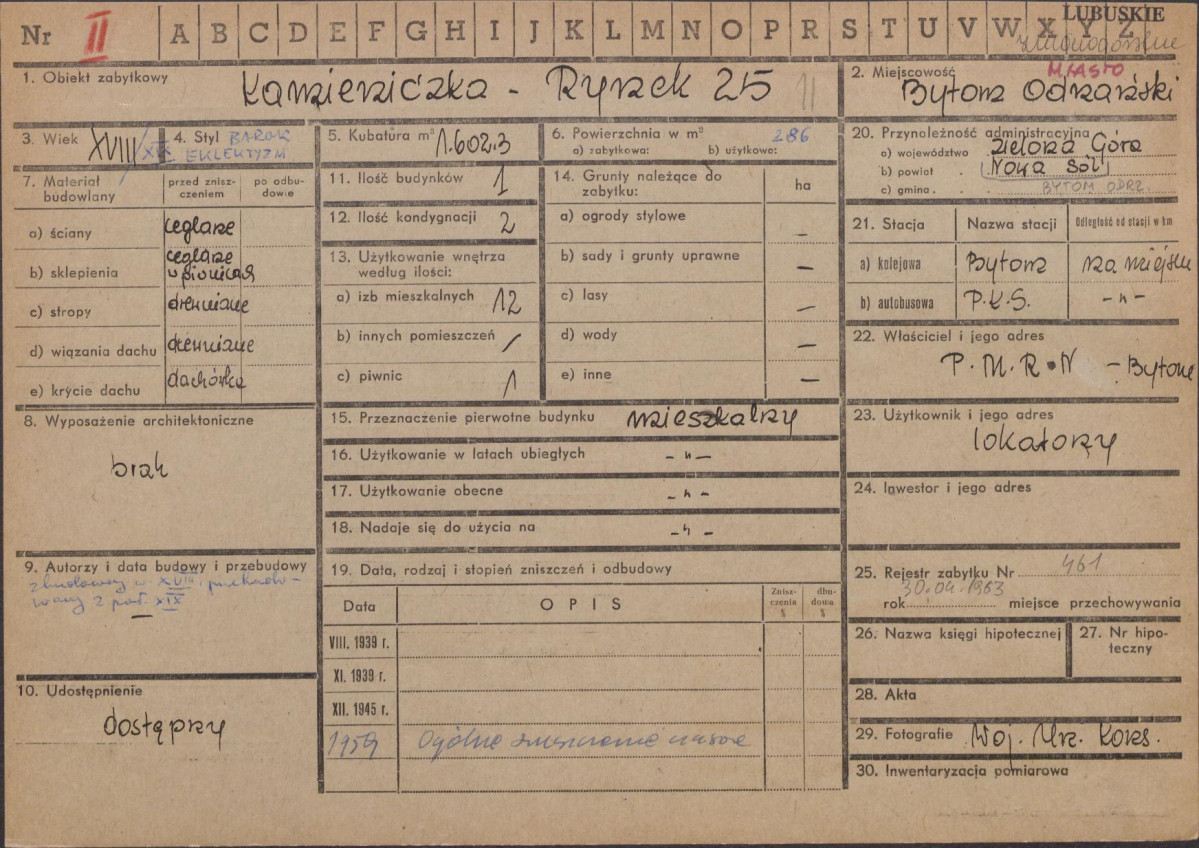 Nr II A B C D E F G H I J K L M N O P R S T U V W X Y Z LUBUSKIE
zielonogórskie
1. Obiekt zabytkowy
Kamieniczka - Rynek 25 11
2. Miejscowość MIASTO
Bytom Odrzański
3. Wiek XVIII/XIX
4. Styl BAROK
EKLEKTYZM
5. Kubatura m³ 1.602.3
6. Powierzchnia w m² 286
a) zabytkowa: b) użytkowe:
7. Materiał budowlany
przed zniszczeniem
po odbudowie
a) ściany ceglane
b) sklepienia ceglane w piwnicach
c) stropy drewniane
d) wiązania dachu drewniane
e) krycie dachu dachówka
8. Wyposażenie architektoniczne
brak
9. Autorzy i data budowy i przebudowy
zbudowany w. XVIII, przebudo-
wany 2 poł. XIX
10. Udostępnienie
dostępny
11. Ilość budynków 1
12. Ilość kondygnacji 2
13. Użytkowanie wnętrza
według ilości:
a) izb mieszkalnych 12
b) innych pomieszczeń /
c) piwnic 1
14. Grunty należące do
zabytku: ha
a) ogrody stylowe –
b) sady i grunty uprawne –
c) lasy –
d) wody –
e) inne –
15. Przeznaczenie pierwotne budynku mieszkalny
16. Użytkowanie w latach ubiegłych - „ -
17. Użytkowanie obecne - „ -
18. Nadaje się do użycia na - „ -
19. Data, rodzaj i stopień zniszczeń i odbudowy
Data OPIS Zniszczenia % dbudowa %
VIII. 1939 r.
XI. 1939 r.
XII. 1945 r.
1959 Ogólne zniszczenie
20. Przynależność administracyjna
a) województwo Zielona Góra
b) powiat Nowa Sól
c) gmina BYTOM ODRZ.
21. Stacja Nazwa stacji Odległość od stacji w km
a) kolejowa Bytom na miejscu
b) autobusowa P.K.S. - „ -
22. Właściciel i jego adres
P.M.R.N - Bytom
23. Użytkownik i jego adres
lokatorzy
24. Inwestor i jego adres
25. Rejestr zabytku Nr 461
rok 30.04.1963 miejsce przechowywania
26. Nazwa księgi hipotecznej
27. Nr hipo-
teczny
28. Akta
29. Fotografie Woj. Urz. Kons.
30. Inwentaryzacja pomiarowa